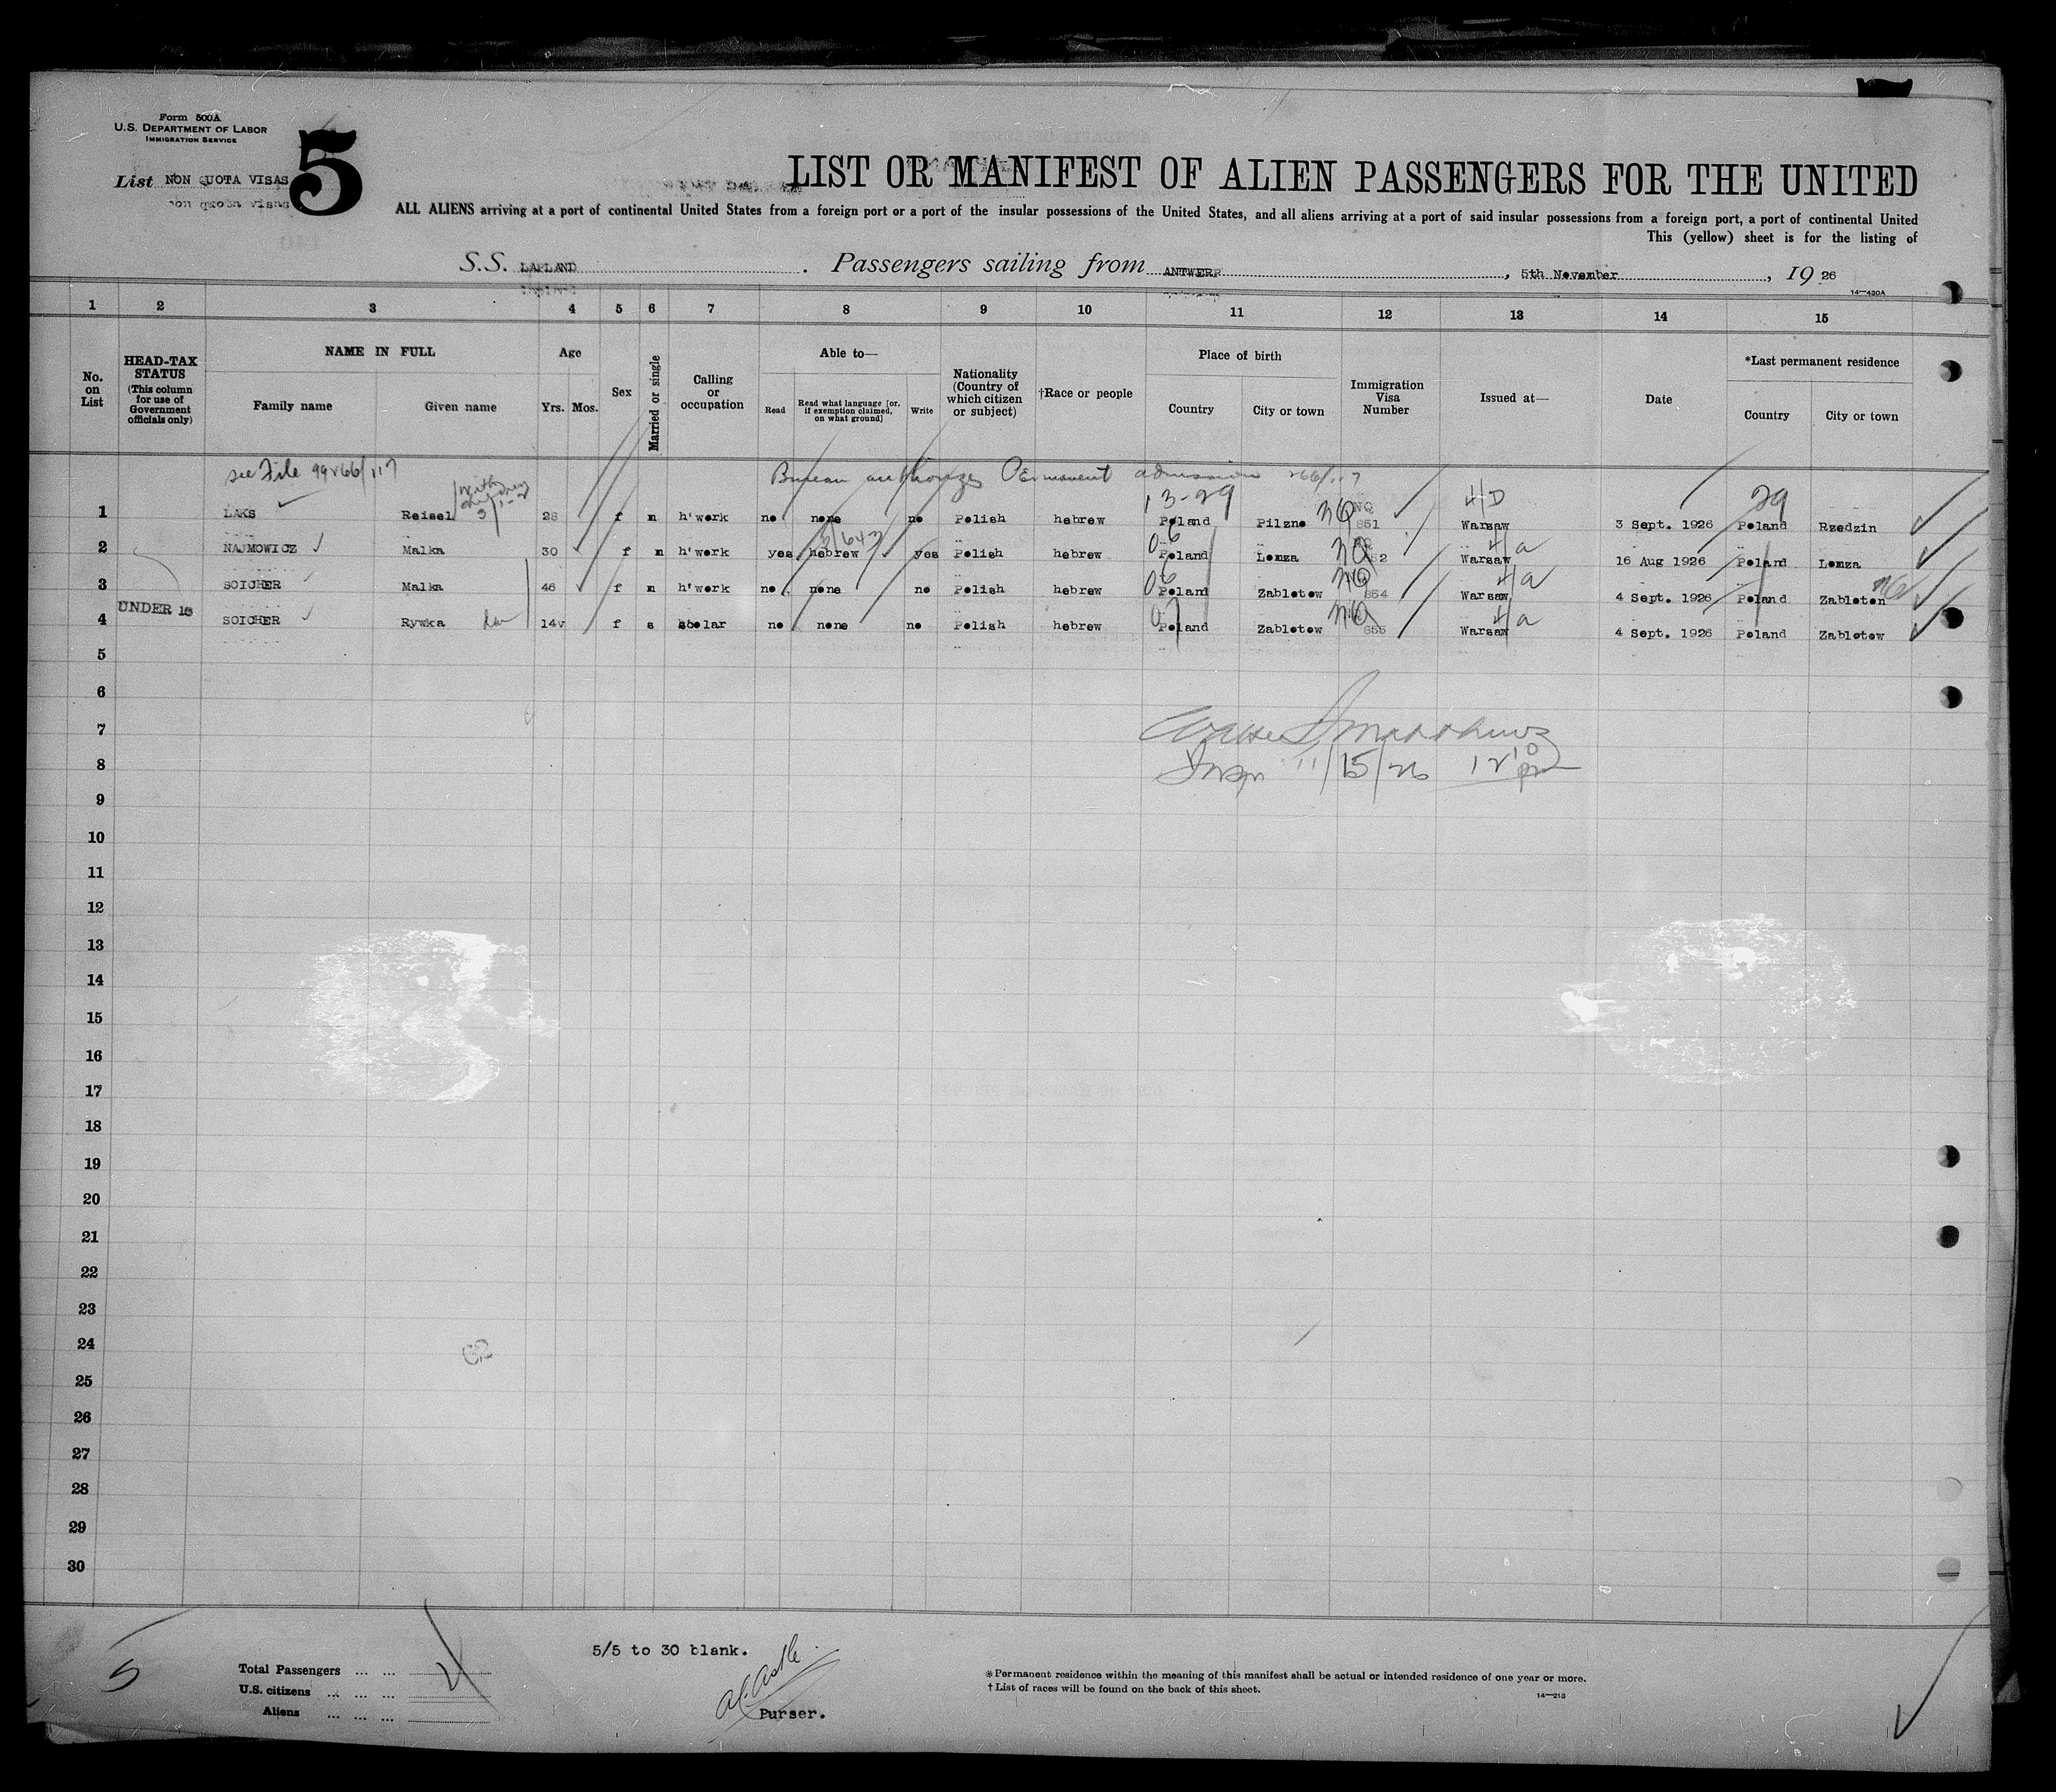 Form 500A
U.S. DEPARTMENT OF LABOR
IMMIGRATION SERVICE
List NON QUOTA VISAS
5
LIST OR MANIFEST OF ALIEN PASSENGERS FOR THE UNITED
ALL ALIENS arriving at a port of continental United States from a foreign port or a port of the insular possessions of the United States, and all aliens arriving at a port of said insular possessions from a foreign port, a port of continental United
This (yellow) sheet is for the listing of
S.S. LAPLAND. Passengers sailing from ANTWERP, 5th November, 19 26
14—430A
1 2 3 4 5 6 7 8 9 10 11 12 13 14 15
No. on List
HEAD-TAX STATUS (This column for use of Government officials only)
NAME IN FULL
Family name Given name
Age
Yrs. Mos.
Sex
Married or single
Calling or occupation
Able to—
Read Read what language [or, if exemption claimed, on what ground] Write
Nationality (Country of which citizen or subject)
†Race or people
Place of birth
Country City or town
Immigration Visa Number
Issued at—
Date
*Last permanent residence
Country City or town
see File 99466/117 Bureau authorizes Permanent admission
13-29 NQ NQ 4/D 29
1 LAKS Reisel 28 f m h'work no none no Polish hebrew Poland Pilzno 851 Warsaw 3 Sept. 1926 Poland Rzedzin
06 NQ 4/a
2 NAJMOWICZ Malka 30 f m h'work yes hebrew yes Polish hebrew Poland Lomza Warsaw 16 Aug 1926 Poland Lomza
06 NQ 4/a
3 SOICHER Malka 46 f m h'work no none no Polish hebrew Poland Zablotow 854 Warsaw 4 Sept. 1926 Poland Zabloton
UNDER 16
07 NQ 4/a
4 SOICHER Rywka 14 f s scolar no none no Polish hebrew Poland Zablotow 855 Warsaw 4 Sept. 1926 Poland Zablotow
5
6
7
8 11/15/26 12 10 pm
9
10
11
12
13
14
15
16
17
18
19
20
21
22
23
24
25
26
27
28
29
30
5
5/5 to 30 blank.
Total Passengers ... ...
U.S. citizens ... ... ...
Aliens ... ... ...
Purser.
*Permanent residence within the meaning of this manifest shall be actual or intended residence of one year or more.
†List of races will be found on the back of this sheet.
14—213